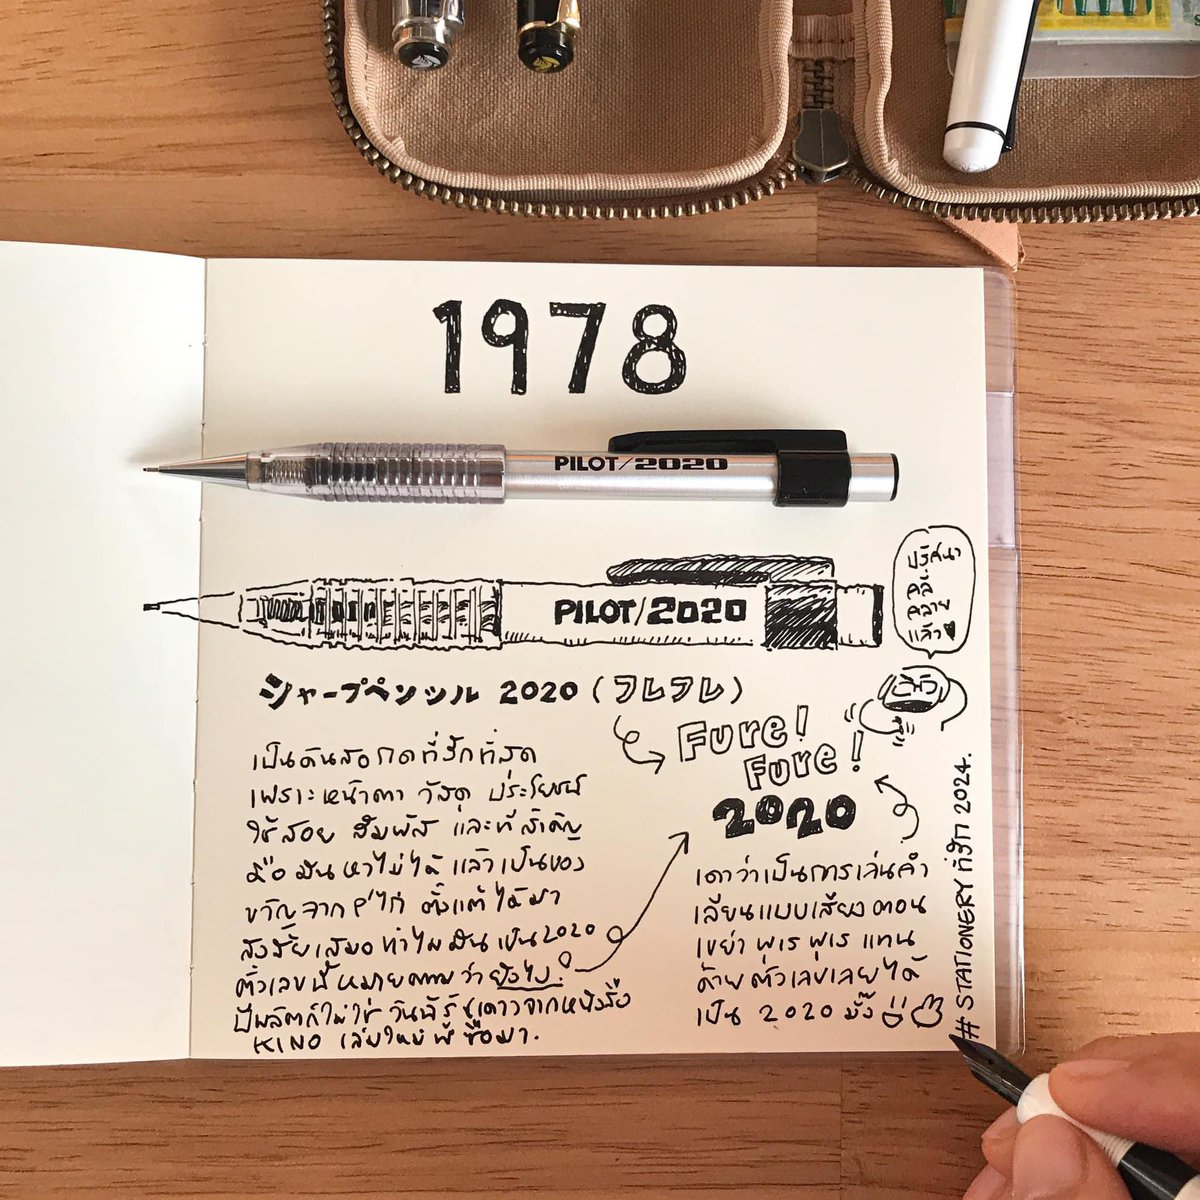 1978
PILOT/2020
ปริศนา
คลี่
คลาย
แล้ว
PILOT/2020
シャープペンシル 2020 (フレフレ)
Fure!
Fure!
2020
เป็นดินสอกดที่รักที่สุด
เพราะหน้าตา วัสดุ ประโยชน์
ใช้สอย สัมผัส และที่สำคัญ
คือมันหาไม่ได้ แล้วเป็นของ
ขวัญจากพี่ไก่ ตั้งแต่ได้มา
สงสัยเสมอทำไมมันเป็น 2020
ตัวเลขนี้หมายความว่ายังไง?
ปีผลิตก็ไม่ใช่ วันนี้รู้แล้วจากหนังสือ
KINO เล่มใหม่ที่ซื้อมา.
เดาว่าเป็นการเล่นคำ
เลียนแบบเสียงตอน
เขย่า ฟุเร ฟุเร แทน
ด้วยตัวเลขเลยได้
เป็น 2020 มั้ง
# STATIONERY ที่รัก 2024.